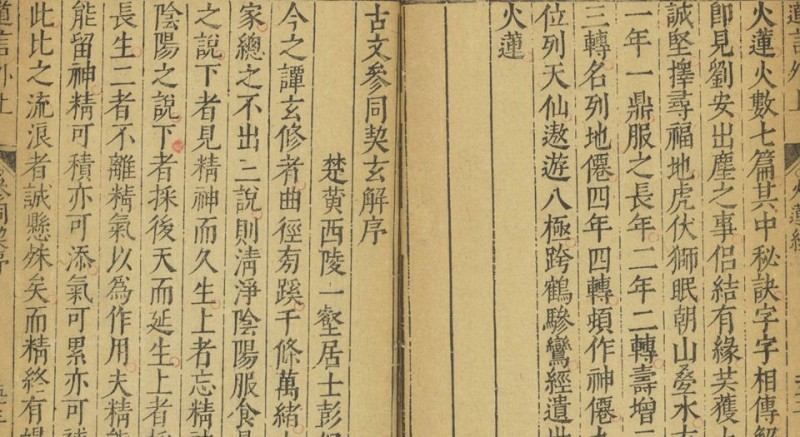 道言外上
火蓮經
火蓮火數七篇其中秘訣字字相傳解
即見劉安出塵之事侶結有緣芙獲
誠堅擇尋福地虎伏獅眠朝山夌水
一年一鼎服之長年二年二轉壽增
三轉名列地僊四年四轉頻作神僊
位列天仙遨遊八極跨鶴驂鸞經遺
火蓮
古文參同契玄解序
楚黄西陵一壑居士彭
今之譚玄修者曲徑旁蹊千條萬緒
家總之不出二說則淸淨陰陽服食
之說下者見精神而久生上者忘精
陰陽之說下者採後天而延生上者
長生二者不離精氣以為作用夫精
能留神精可積亦可添氣可累亦可
此比之流浪者誠懸殊矣而精終有
道言外上
參同契序